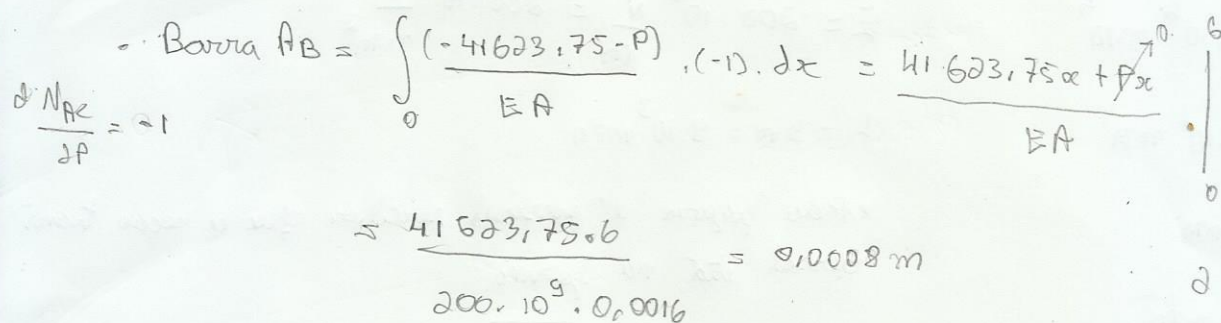 . Barra AB = ∫₀ (-41623,75-P)/EA . (-1). dx = 41.623,75x + Px →0 / EA |₀⁶
∂ N_AC/∂P = -1
= 41623,75.6 / 200.10⁹.0,0016 = 0,0008 m
2